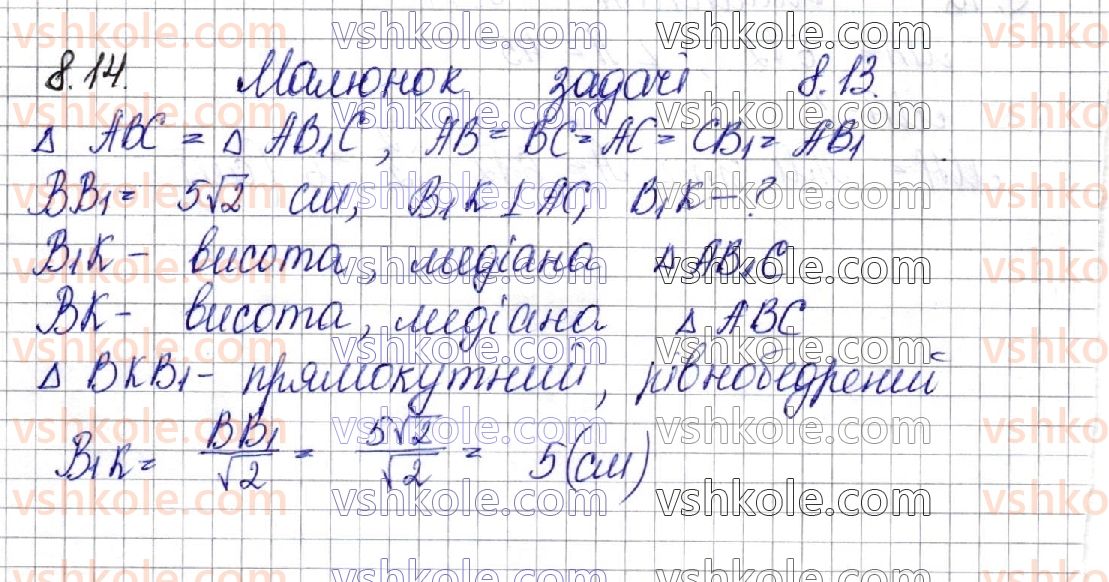 8.14. Малюнок задачі 8.13.
△ ABC = △ AB₁C, AB = BC = AC = CB₁ = AB₁
BB₁ = 5√2 см, B₁K ⊥ AC, B₁K - ?
B₁K - висота, медіана △ AB₁C
BK - висота, медіана △ ABC
△ BKB₁ - прямокутний, рівнобедрений
B₁K = BB₁/√2 = 5√2/√2 = 5 (см)
vshkole.com